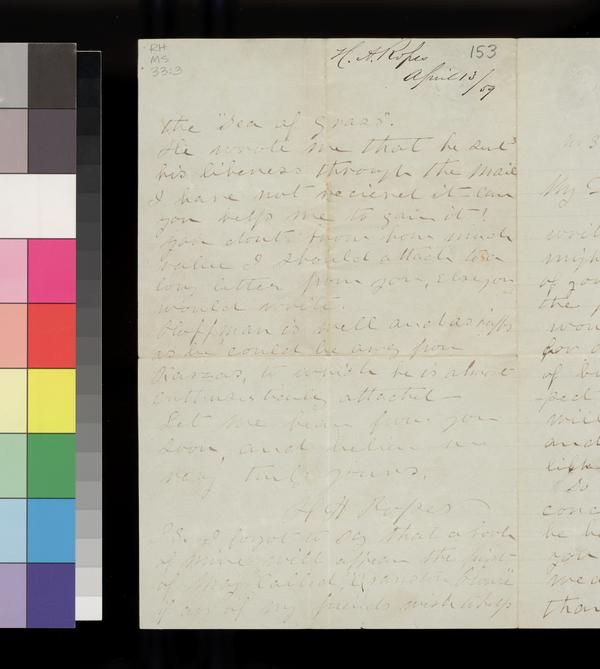 RH
MS
33:3
H. A. Ropes
153
April 13/59
the "Sea of Grass".
He wrote me that he sent
his likeness through the mail
I have not recieved it - can
you help me to gain it!
You dont know how much
value I should attach to a
long letter from you, else you
would write.
Hoffman is well and as happy
as he could be away from
Kanzas, to which he is almost
enthusiastically attached -
Let me hear from you
soon, and believe me
very truly yours,
H Ropes
P.S. I forgot to say that a book
of mine will appear the first
of May called "Cranston House"
If any of my friends wish to help
My
writ
might
of you
the
won
for
of
pect
will
and
like
So
conc
be he
you
me
than